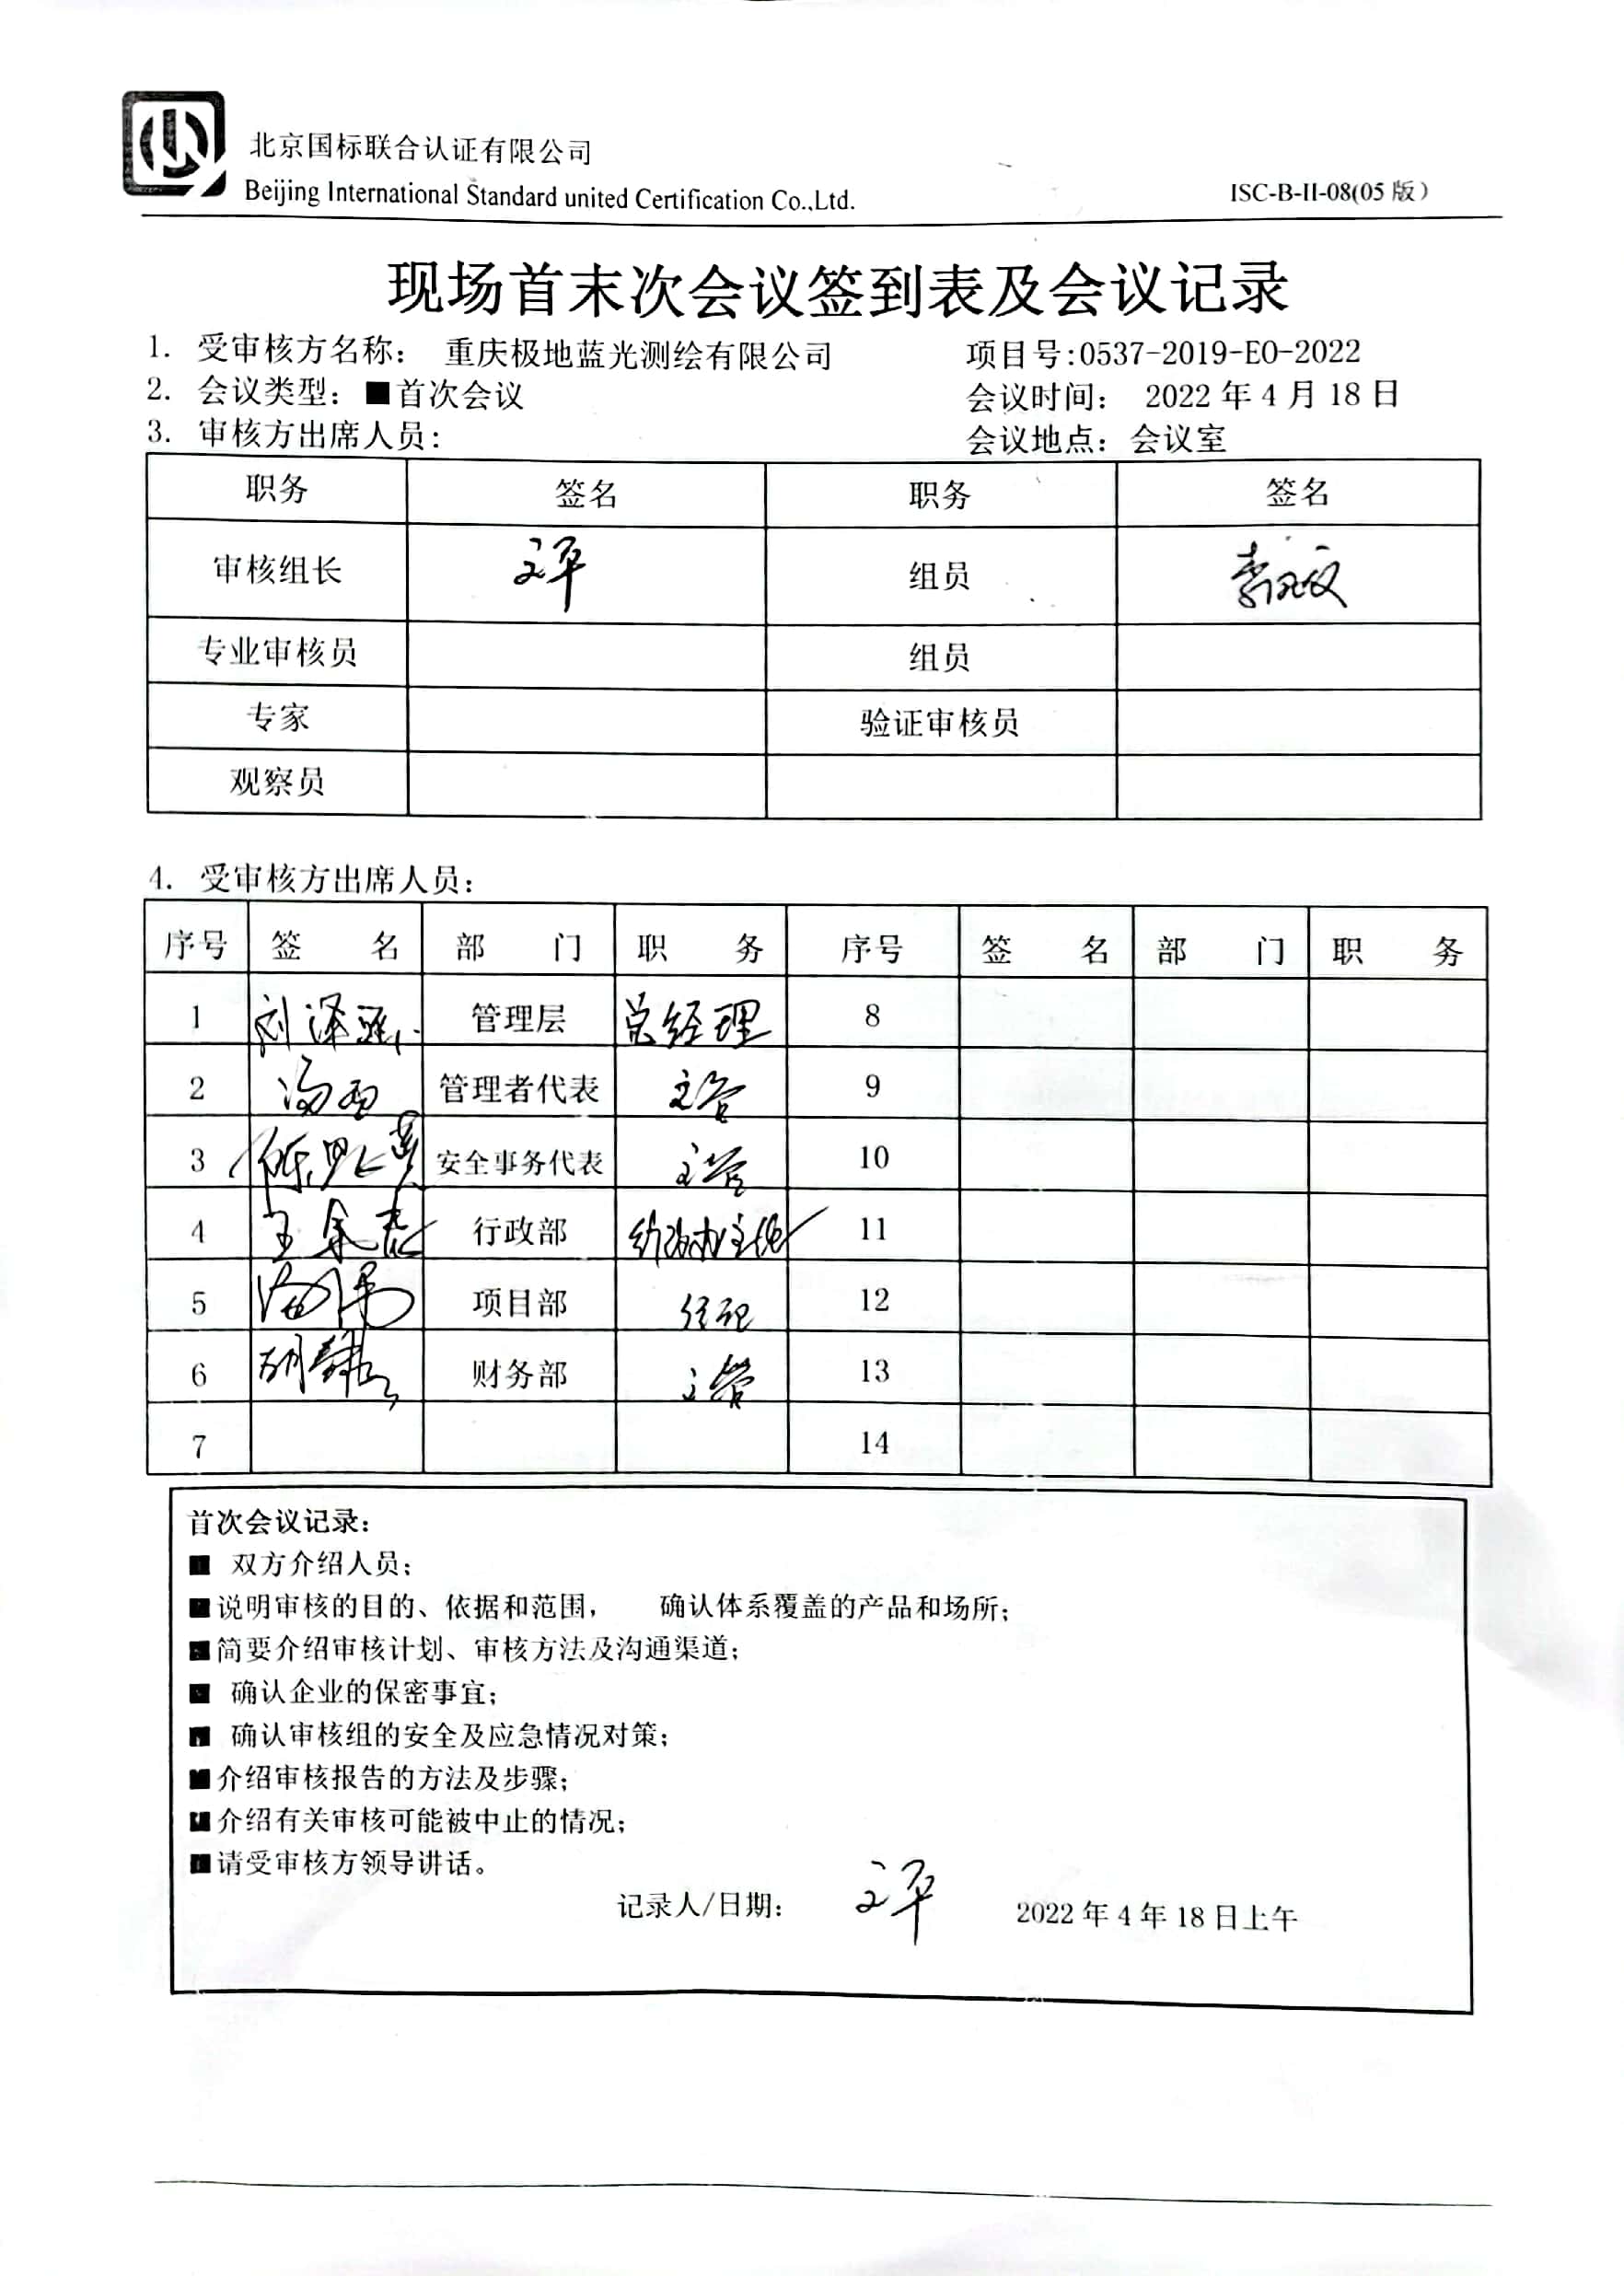 北京国标联合认证有限公司
Beijing International Standard united Certification Co.,Ltd.
ISC-B-II-08(05 版)
现场首末次会议签到表及会议记录
1. 受审核方名称： 重庆极地蓝光测绘有限公司 项目号:0537-2019-EO-2022
2. 会议类型: ■首次会议 会议时间： 2022 年 4 月 18 日
3. 审核方出席人员: 会议地点：会议室
职务 签名 职务 签名
审核组长 文平 组员
专业审核员 组员
专家 验证审核员
观察员
4. 受审核方出席人员:
序号 签 名 部 门 职 务 序号 签 名 部 门 职 务
1 管理层 总经理 8
2 管理者代表 主管 9
3 安全事务代表 主管 10
4 行政部 11
5 项目部 经理 12
6 财务部 主管 13
7 14
首次会议记录:
■ 双方介绍人员;
■说明审核的目的、依据和范围， 确认体系覆盖的产品和场所;
■简要介绍审核计划、审核方法及沟通渠道;
■ 确认企业的保密事宜;
■ 确认审核组的安全及应急情况对策;
■介绍审核报告的方法及步骤;
■介绍有关审核可能被中止的情况;
■请受审核方领导讲话。
记录人/日期: 文平 2022 年 4 年 18 日上午